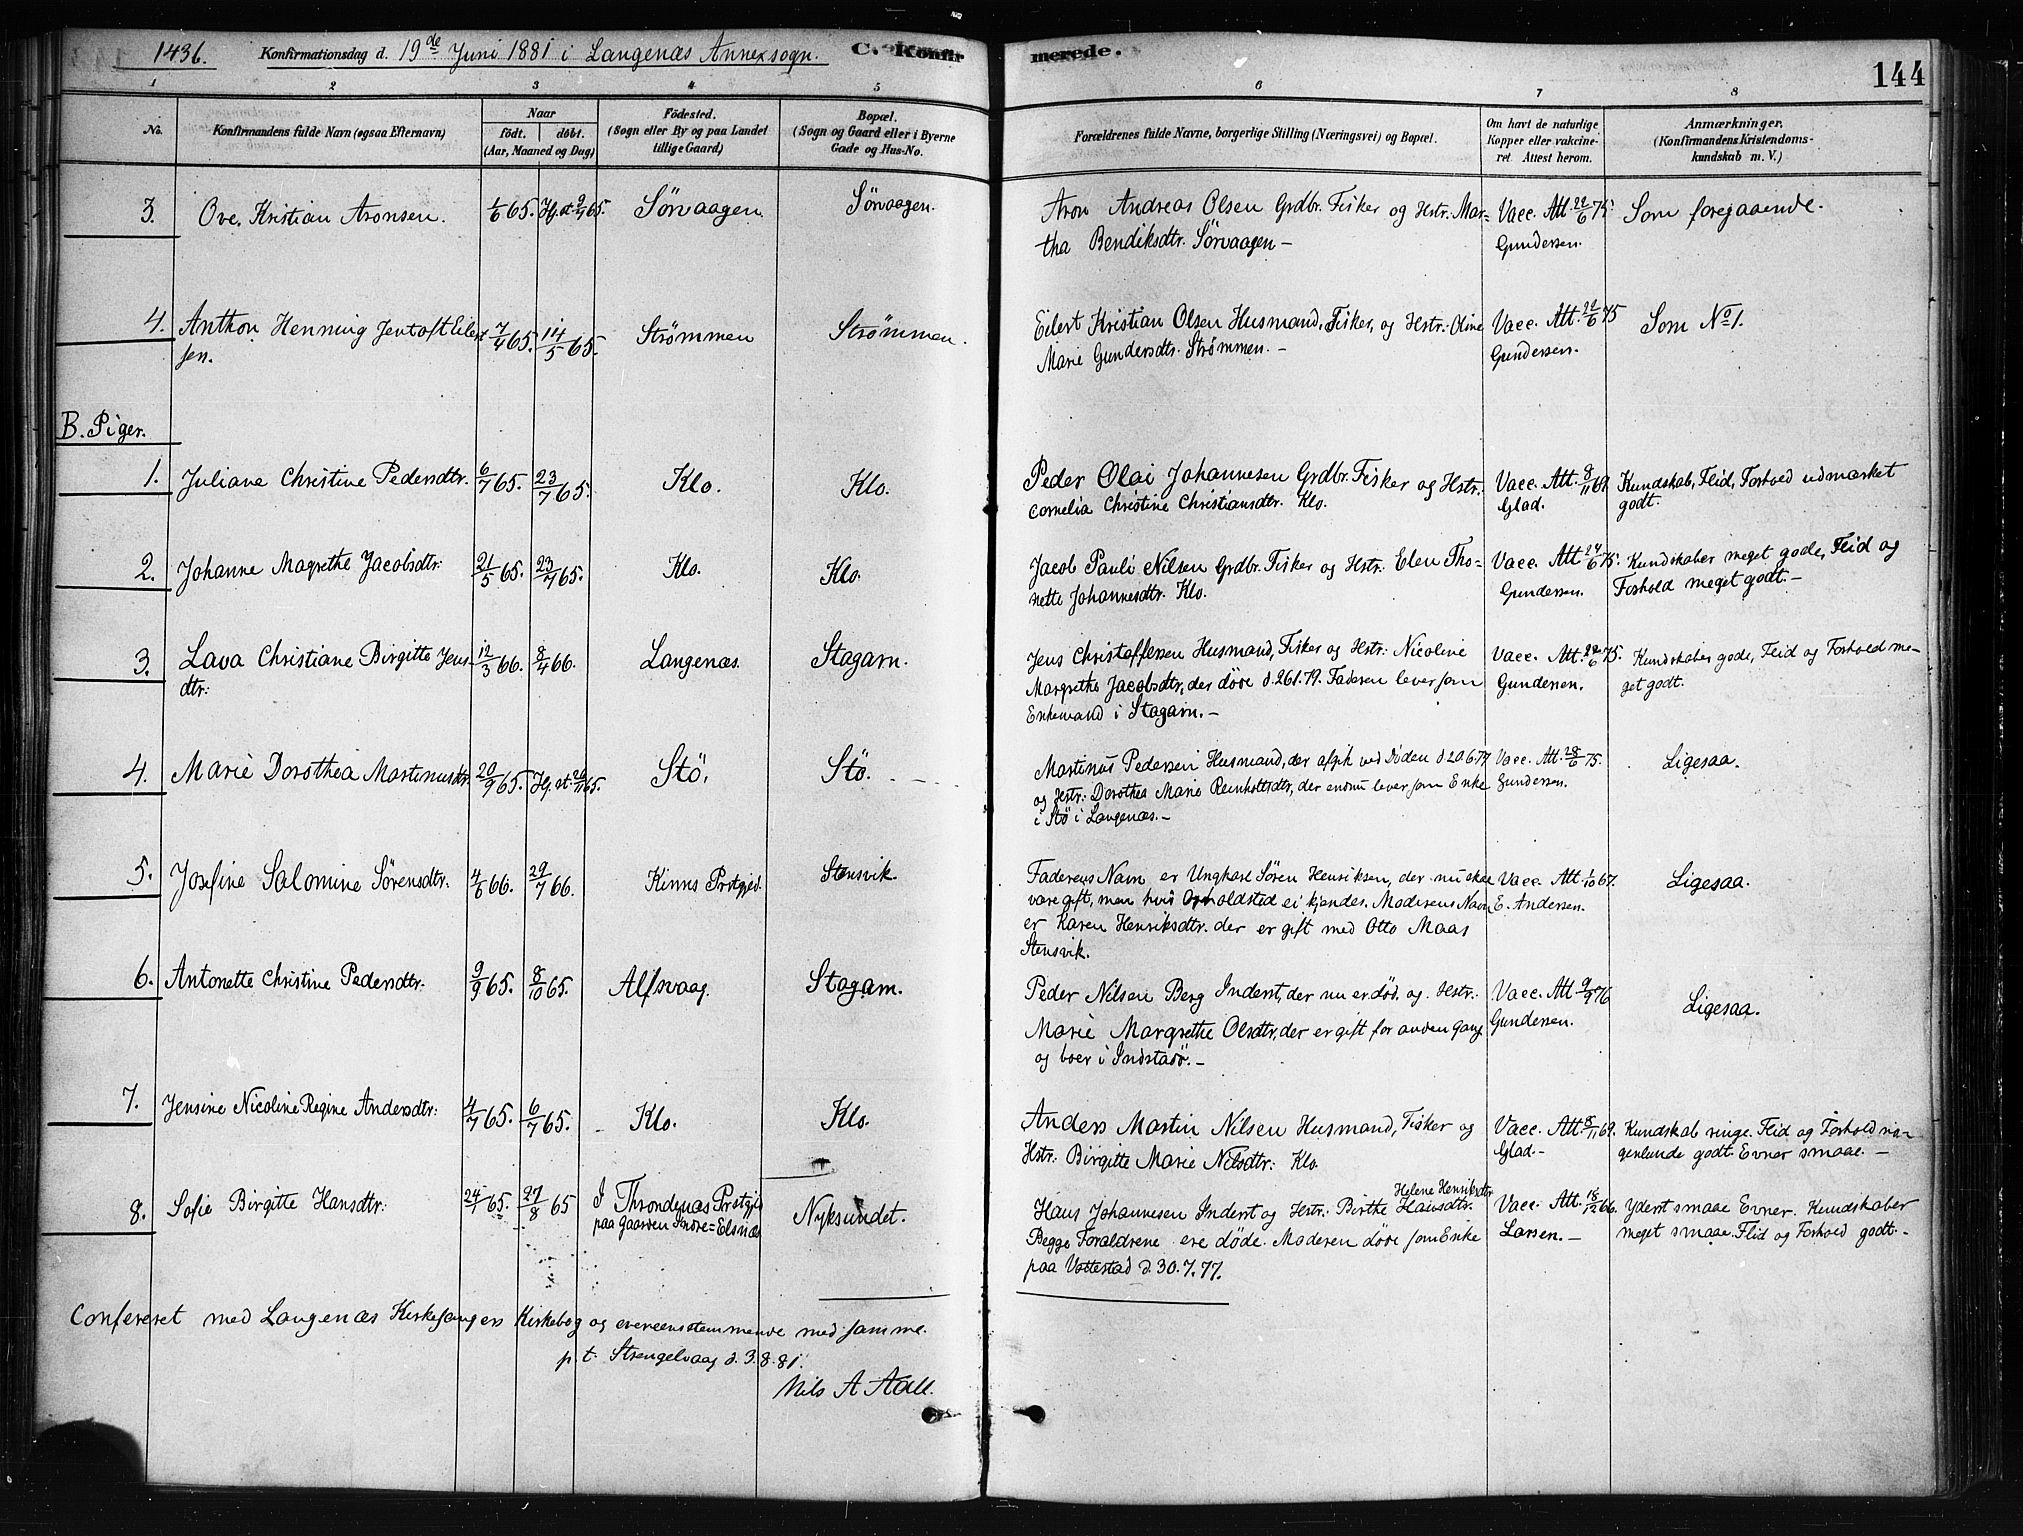 1436. Konfirmationsdag d. 19de Juni 1881 i Langenæs Annexsogn. C. Konfirmerede. 144
1 2 3 4 5 6 7 8
No. Konfirmandens fulde Navn (ogsaa Efternavn) Naar født. døbt. (Aar, Maaned og Dag) Födested. (Sogn eller By og paa Landet tillige Gaard) Bopæl. (Sogn og Gaard eller i Byerne Gade og Hus-No. Forældrenes fulde Navne, borgerlige Stilling (Næringsvei) og Bopæl. Om havt de naturlige Kopper eller vakcineret. Attest herom. Anmærkninger. (Konfirmandens Kristendomskundskab m. V.)
3. Ove Kristian Aronsen. 1/6 65. Hj. d. 9/7 65. Sörvaagen. Sörvaagen. Aron Andreas Olsen Grdbr. Fisker og Hstr. Mar=
tha Bendiksdtr. Sörvaagen –
Vacc. Att. 22/6 75.
Gundersen.
Som foregaaende.
4. Anthon Henning Jentoft Eilert
sen. 7/4 65. 14/5 65. Strømmen Strømmen. Eilert Kristian Olsen Husmand, Fisker, og Hstr. Oline
Marie Gundersdtr. Strømmen. –
Vacc. Att. 22/6 75
Gundersen.
Som No 1.
B. Piger.
1. Juliane Christine Pedersdtr. 6/7 65. 23/7 65. Klo. Klo. Peder Olai Johannesen Grdbr. Fisker og Hstr.
Cornelia Christine Christiansdtr. Klo.
Vacc. Att. 8/11 69.
Glad.
Kundskab, Flid, Forhold udmærket
godt.
2. Johanne Magrethe Jacobsdtr: 21/5 65. 23/7 65. Klo. Klo. Jacob Pauli Nilsen Grdbr. Fisker og Hstr. Elen Tho=
nette Johannesdtr. Klo.
Vacc. Att 24/6 75.
Gundersen.
Kundskaber meget gode, Flid og
Forhold meget godt. –
3. Lava Christiane Birgitte Jens-
dtr: 12/3 66. 8/4 66. Langenæs. Stagarn. Jens Christoffersen Husmand, Fisker og Hstr: Nicoline
Margrethe Jacobsdtr, der døde d. 26.1.79. Faderen lever som
Enkemand i Stagarn. –
Vacc. Att. 22/6 75.
Gundersen.
Kundskaber gode, Flid og Forhold me-
get godt.
4. Marie Dorothea Martinusdtr. 20/9 65. Hj. d. 26/11 65. Stö. Stö. Martinus Pedersen Husmand, der afgik ved Døden d 20.6.79
og Hstr: Dorothea Marie Reinholtsdtr, der endnu lever som Enke
i Stö i Langenæs. –
Vacc. Att. 28/6 75.
Gundersen.
Ligesaa.
5. Josefine Salomine Sörensdtr. 4/6 66. 29/7 66. Kinns Prstgjed. Stensvik. Faderens Navn er Ungkarl Sören Henriksen, der nu skal
være gift, men hvis Opholdsted ei kjendes. Moderens Navn
er Karen Henriksdtr. der er gift med Otto Maas
Stensvik.
Vacc. Att 1/10 67.
E. Andersen.
Ligesaa.
6. Antonette Christine Pedersdtr. 9/9 65. 8/10 65. Alfsvaag. Stagarn. Peder Nilsen Berg Inderst, der nu er død. og Hstr:
Marie Margrethe Olsdtr, der er gift for anden Gang
og boer i Indstaö. –
Vacc. Att 9/9 76
Gundersen.
Ligesaa.
7. Jensine Nicoline Regine Andersdtr: 4/7 65. 6/7 65. Klo. Klo. Anders Martin Nilsen Husmand, Fisker og
Hstr: Birgitte Marie Nilsdtr: Klo.
Vacc. Att 8/11 69.
Glad. –
Kundskab ringe. Flid og Forhold no-
genlunde godt. Evner smaae. –
8. Sofie Birgitte Hansdtr: 24/7 65. 27/8 65 I Throndenæs Prstgjd
paa Gaarden Indre=Elsnæs Nyksundet. Hans Johannesen Inderst og Hstr: Birthe Hansdtr. Helene Henriksdtr
Begge Forældrene ere døde. Moderen døde som Enke
paa Vottestad d. 30.7.77.
Vacc. Att. 18/12 66.
Larsen. –
Yderst smaae Evner. Kundskaber
meget smaae. Flid og Forhold godt. –
Confereret med Langenæs Kirkesangers Kirkebog og overeensstemmende med samme.
p. t. Strengelvaag d. 3.8.81.
Nils A Aall.